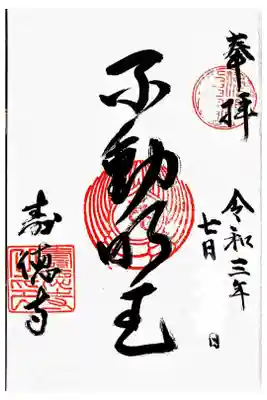 奉拝
令和三年
七日 日
不動明王
寿徳寺